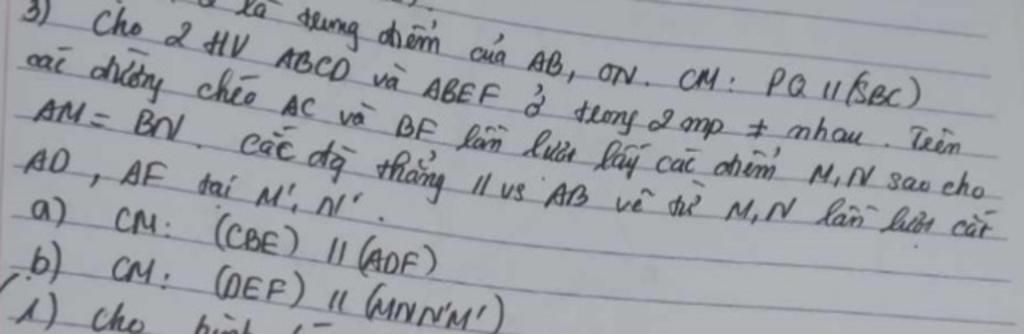 là trung điểm của AB, ON. CM: PQ // (SBC)
3) Cho 2 HV ABCD và ABEF ở trong 2 mp ≠ nhau. Trên
các đường chéo AC và BF lần lượt lấy các điểm M, N sao cho
AM = BN. Các đg thẳng // vs AB vẽ từ M, N lần lượt cắt
AD, AF tại M', N'.
a) CM: (CBE) // (ADF)
b) CM: (DEF) // (MNN'M')
1) Cho hình